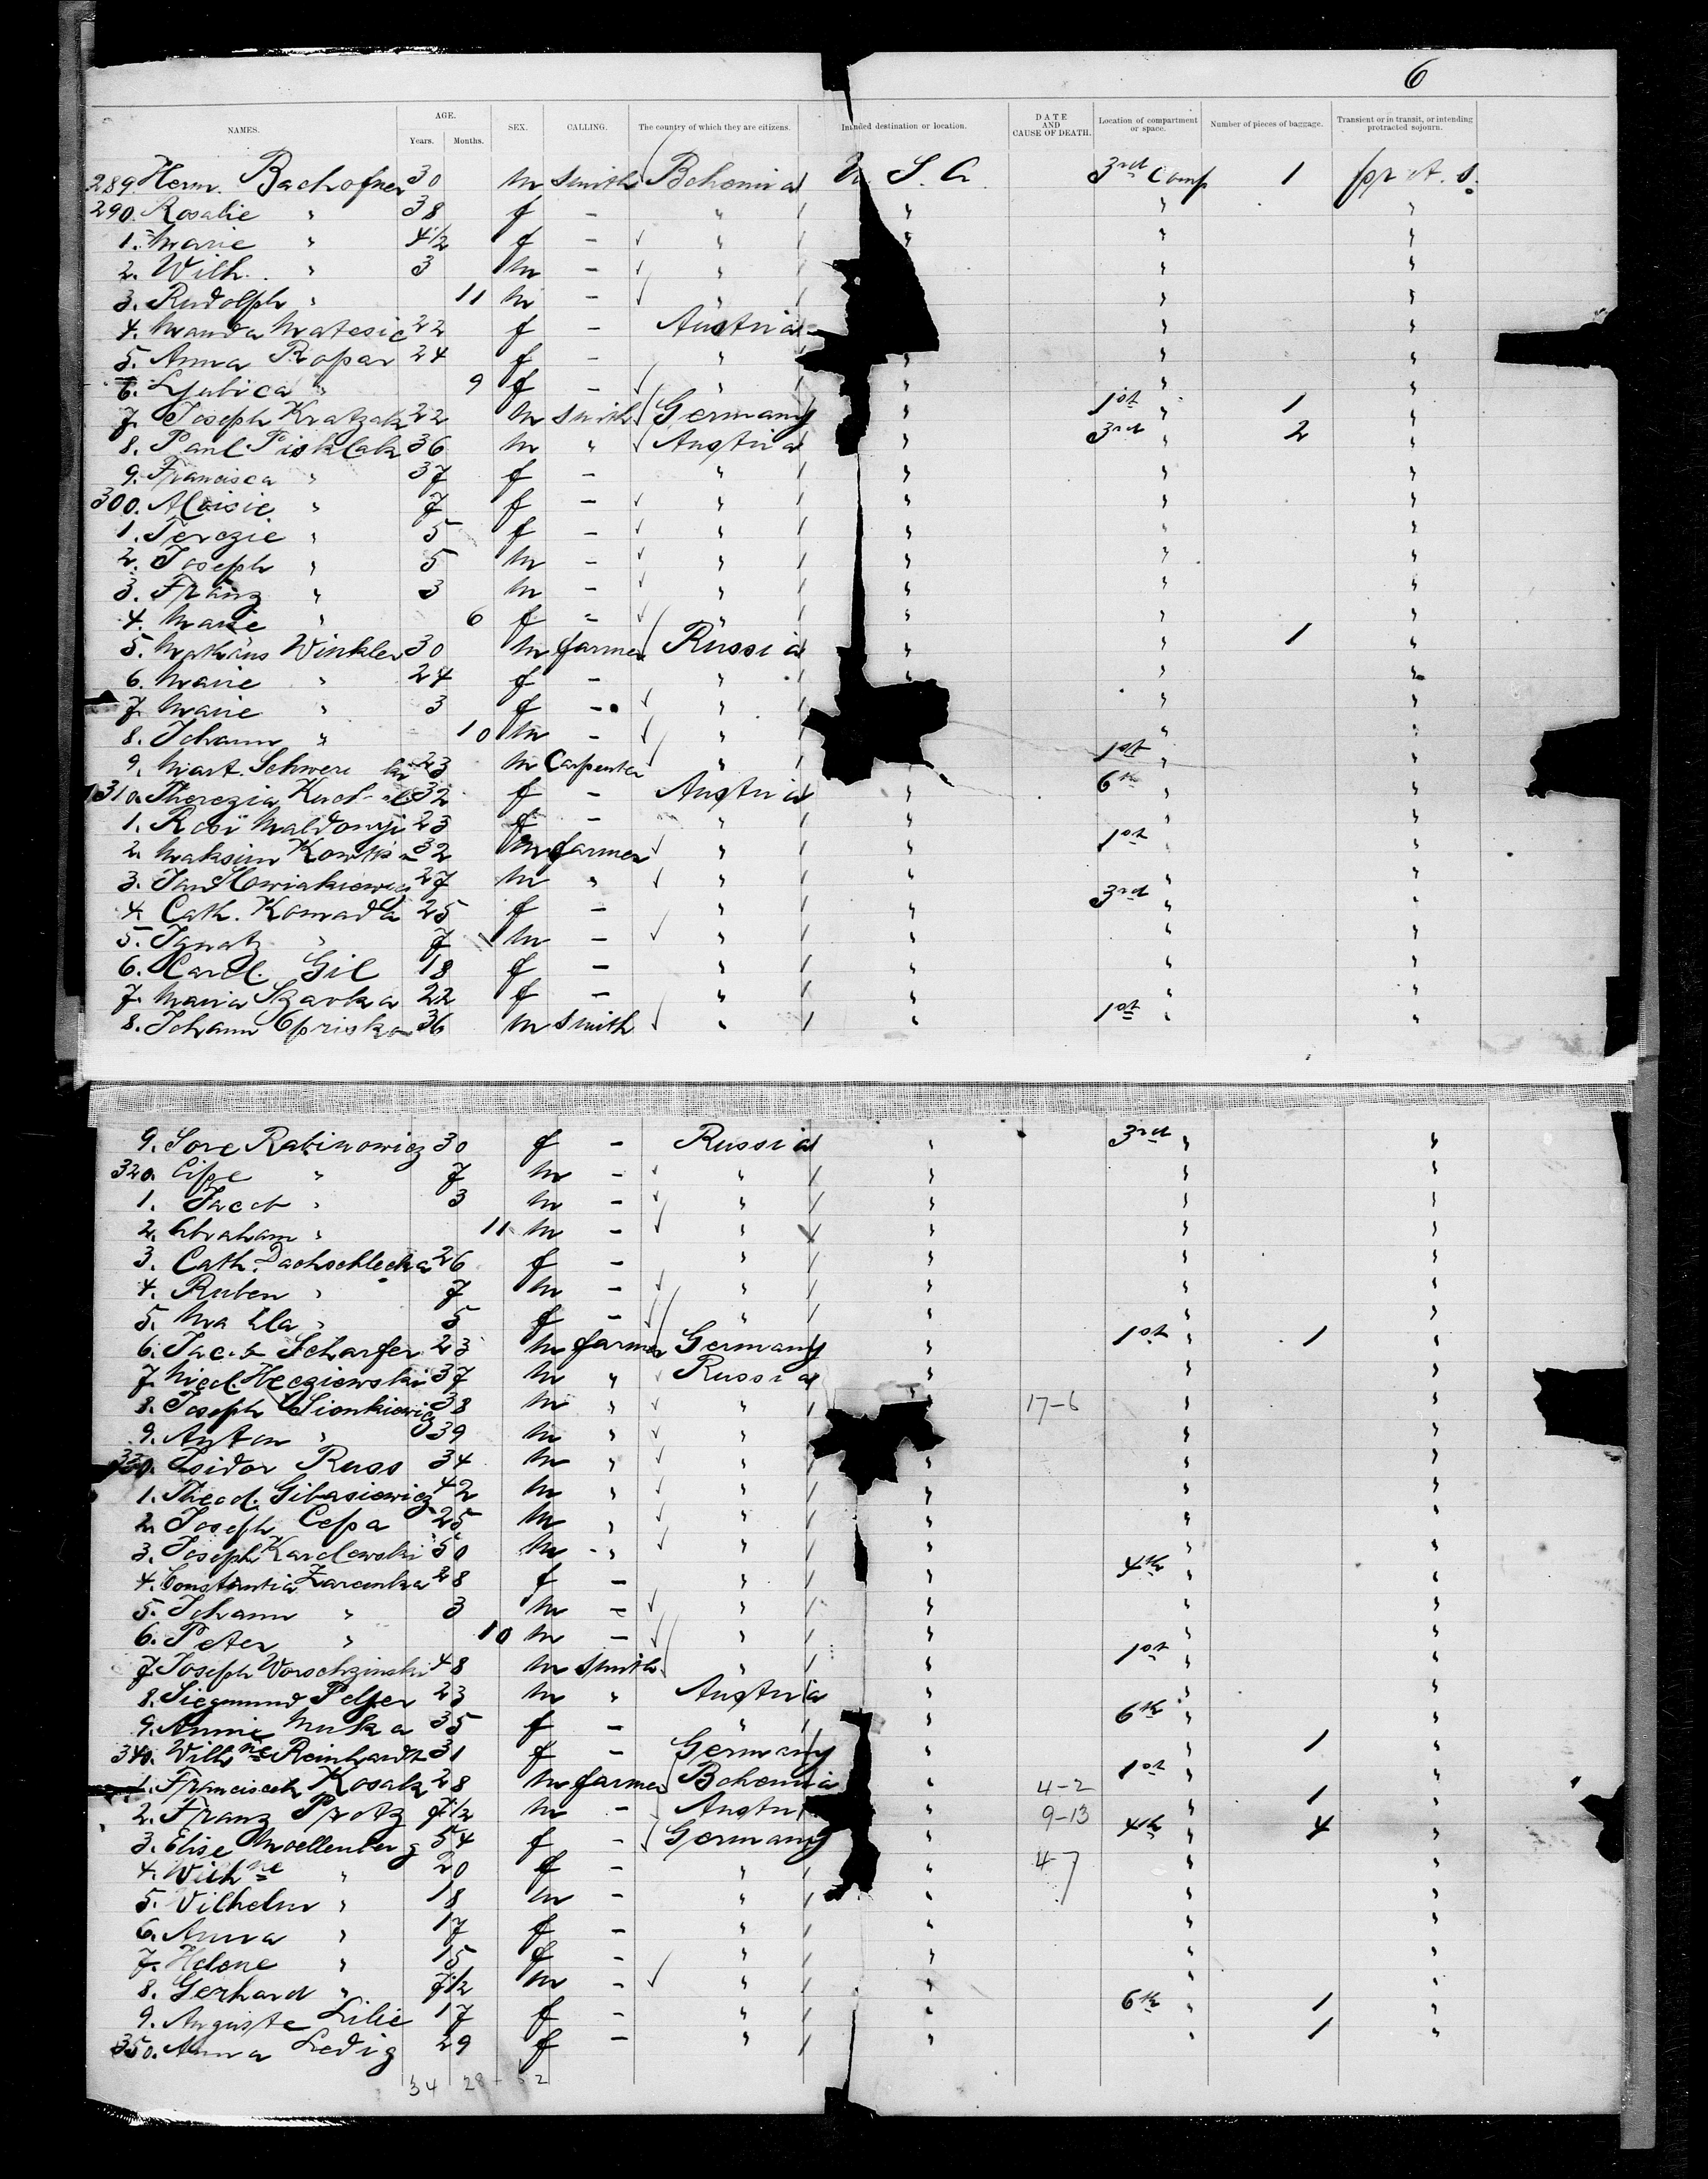 6
NAMES. AGE. Years. Months. SEX. CALLING. The country of which they are citizens. Intended destination or location. DATE AND CAUSE OF DEATH. Location of compartment or space. Number of pieces of baggage. Transient or in transit, or intending protracted sojourn.
289. Herm. Bachofner 30 m smith Bohemia U. S. A. 3rd Comp 1
290. Rosalie " 38 f - " " " "
1. Marie " 4 1/2 f - " " " "
2. Wilh. " 3 m - " " " "
3. Rudolph " 11 m - " " " "
4. Manda Matesic 22 f - Austria " " "
5. Anna Ropar 24 f - " " " "
6. Ljubica " 9 f - " " " "
7. Joseph Kratzak 22 m smith Germany " 1st " 1 "
8. Paul Pisklak 36 m " Austria " 3rd " 2 "
9. Francisca " 37 f - " " " "
300. Aloisie " 7 f - " " " "
1. Terezie " 5 f - " " " "
2. Joseph " 5 m - " " " "
3. Franz " 3 m - " " " "
4. Marie " 6 f - " " " "
5. Mathäus Winkler 30 m farmer Russia " " 1 "
6. Marie " 24 f - " " " "
7. Marie " 3 f - " " "
8. Johann " 10 m - " " "
9. Mart. 23 m Carpenter " 1st "
310. Therezia 32 f - Austria " 6th " "
1. Rosi Maldonyi 23 f - " " " "
2. Maksim 32 m farmer " " 1st " "
3. Jan 27 m " " " " "
4. Cath. Komada 25 f - " " 3rd " "
5. Ignatz " 7 m - " " " "
6. Karol. Gil 18 f - " " " "
7. Maria Szavka 22 f - " " " "
8. Johann Opriska 36 m smith " " 1st " "
9. Sore Rabinowicz 30 f - Russia " 3rd " "
320. Cipe " 7 m - " " " "
1. Jacob " 3 m - " " " "
2. Abraham " 11 m - " " " "
3. Cath. Dachschlecka 26 f - " " " "
4. Ruben " 7 m - " " " "
5. " 5 f - " " " "
6. Jacob Scharfer 23 m farmer Germany " 1st " 1 "
7. 37 m " Russia " "
8. Joseph Sionkiewicz 38 m " " 17-6 " "
9. Anton " 39 m " " " "
330. Isidor Russ 34 m " " " " "
1. Theod. Gibasiewicz 42 m " " " " "
2. Joseph Cepa 25 m " " " " "
3. Joseph Karolewski 50 m " " " " "
4. Constantia Zarenka 28 f - " " 4th " "
5. Johann " 3 m - " " " "
6. Peter " 10 m - " " " "
7. Joseph Worschzinski 48 m smith " " 1st " "
8. Siegmund Pelger 23 m " Austria " " "
9. Annie Muka 35 f - " " 6th " "
340. Wilhne Reinhardt 31 f - Germany " " 1 "
1. Franciscek Kosak 28 m farmer Bohemia " 4-2 1st " "
2. Franz Protz 7 1/2 m - Austria " 9-13 " 1 "
3. Elise Moellenberg 54 f - Germany " 4th 4 "
4. Wilhne " 20 f - " " 4-7 " "
5. Wilhelm " 18 m - " " " "
6. Anna " 17 f - " " " "
7. Helene " 15 f - " " " "
8. Gerhard " 7 1/2 m - " " " "
9. Auguste Lilie 17 f - " " 6th " 1 "
350. Anna Ledig 29 f - " " " 1 "
34 28